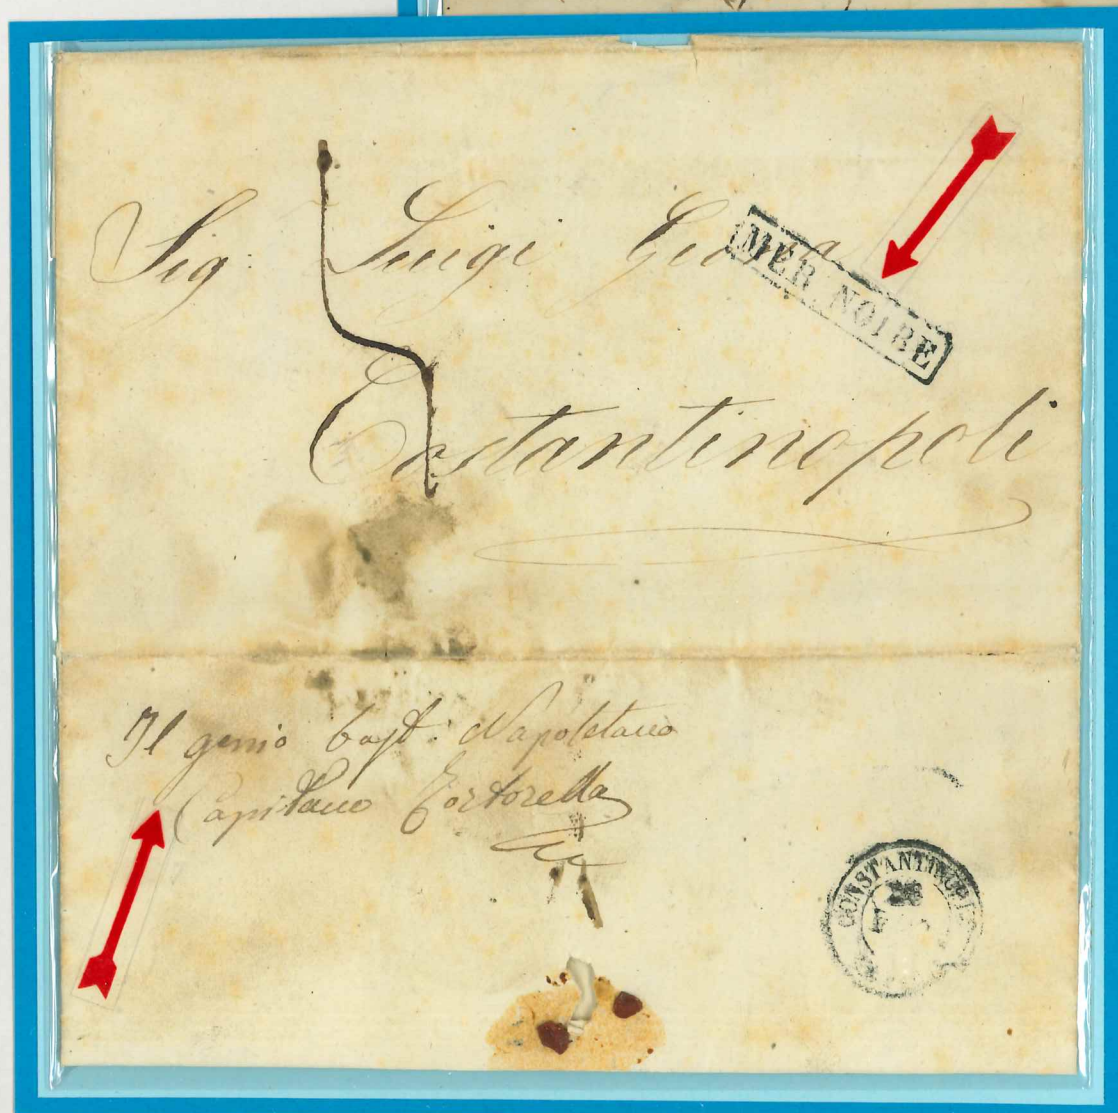 Sig: Luigi
MER NOIRE
Costantinopoli
Il genio bast: Napoletano
Capitano Tortorella
CONSTANTINOPLE